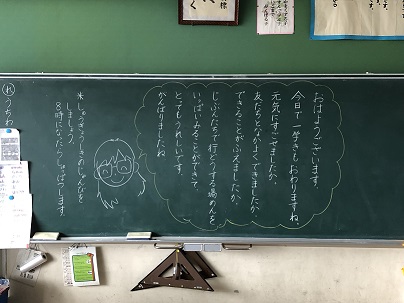 おはようございます。
今日で一学きもおわりますね。
元気にすごせましたか。
友だちとなかよくできましたか。
できることがふえましたか。
じぶんたちで行どうする場めんを、
いっぱいみることができて、
とってもうれしいです。
がんばりましたね
※しゅうぎょうしきのじゅんびを
しましょう。
8時になったらしゅっぱつします。
れ うちわ